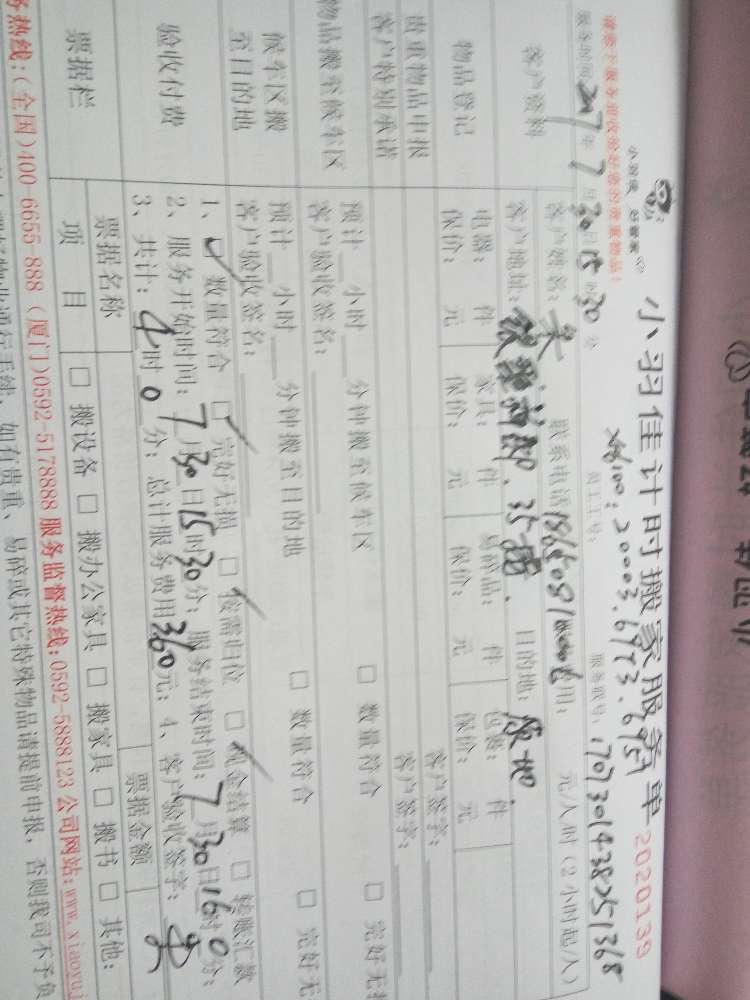 小羽佳 好管家
小羽佳计时搬家服务单 2020139
请您于服务前收拾好您的贵重物品！
员工工号：
服务单号：1707301438251368
服务时间：2017年7月30日15时30分
元/人时（2小时起/人）
客户资料
客户姓名：吴 联系电话
客户地址： 目的地：原地.
物品登记
电器： 件 家具： 件 易碎品： 件 包裹： 件
保价： 元 保价： 元 保价： 元 保价： 元
贵重物品申报 客户签字：
客户特别承诺 客户签字：
物品搬至候车区
预计__小时__分钟搬至候车区 □ 数量符合 □ 完好无损
客户验收签名：
候车区搬至目的地
预计__小时__分钟搬至目的地 □ 数量符合 □ 完好无
客户验收签名：
验收付费
1、□ 数量符合 □ 完好无损 □ 按需归位 □ 现金结算 □ 转账汇款
2、服务开始时间：7月30日15时30分；服务结束时间：7月30日16时0分；
3、共计：4时0分；总计服务费用360元；4、客户验收签字：吴
票据栏
票据名称 票据金额
项目 □ 搬设备 □ 搬办公家具 □ 搬家具 □ 搬书 □ 其他：
务热线：(全国)400-6655-888 (厦门)0592-5178888 服务监督热线：0592-5888123 公司网站：www.xiaoyuj
如有贵重、易碎或其它特殊物品请提前申报，否则我司不予负